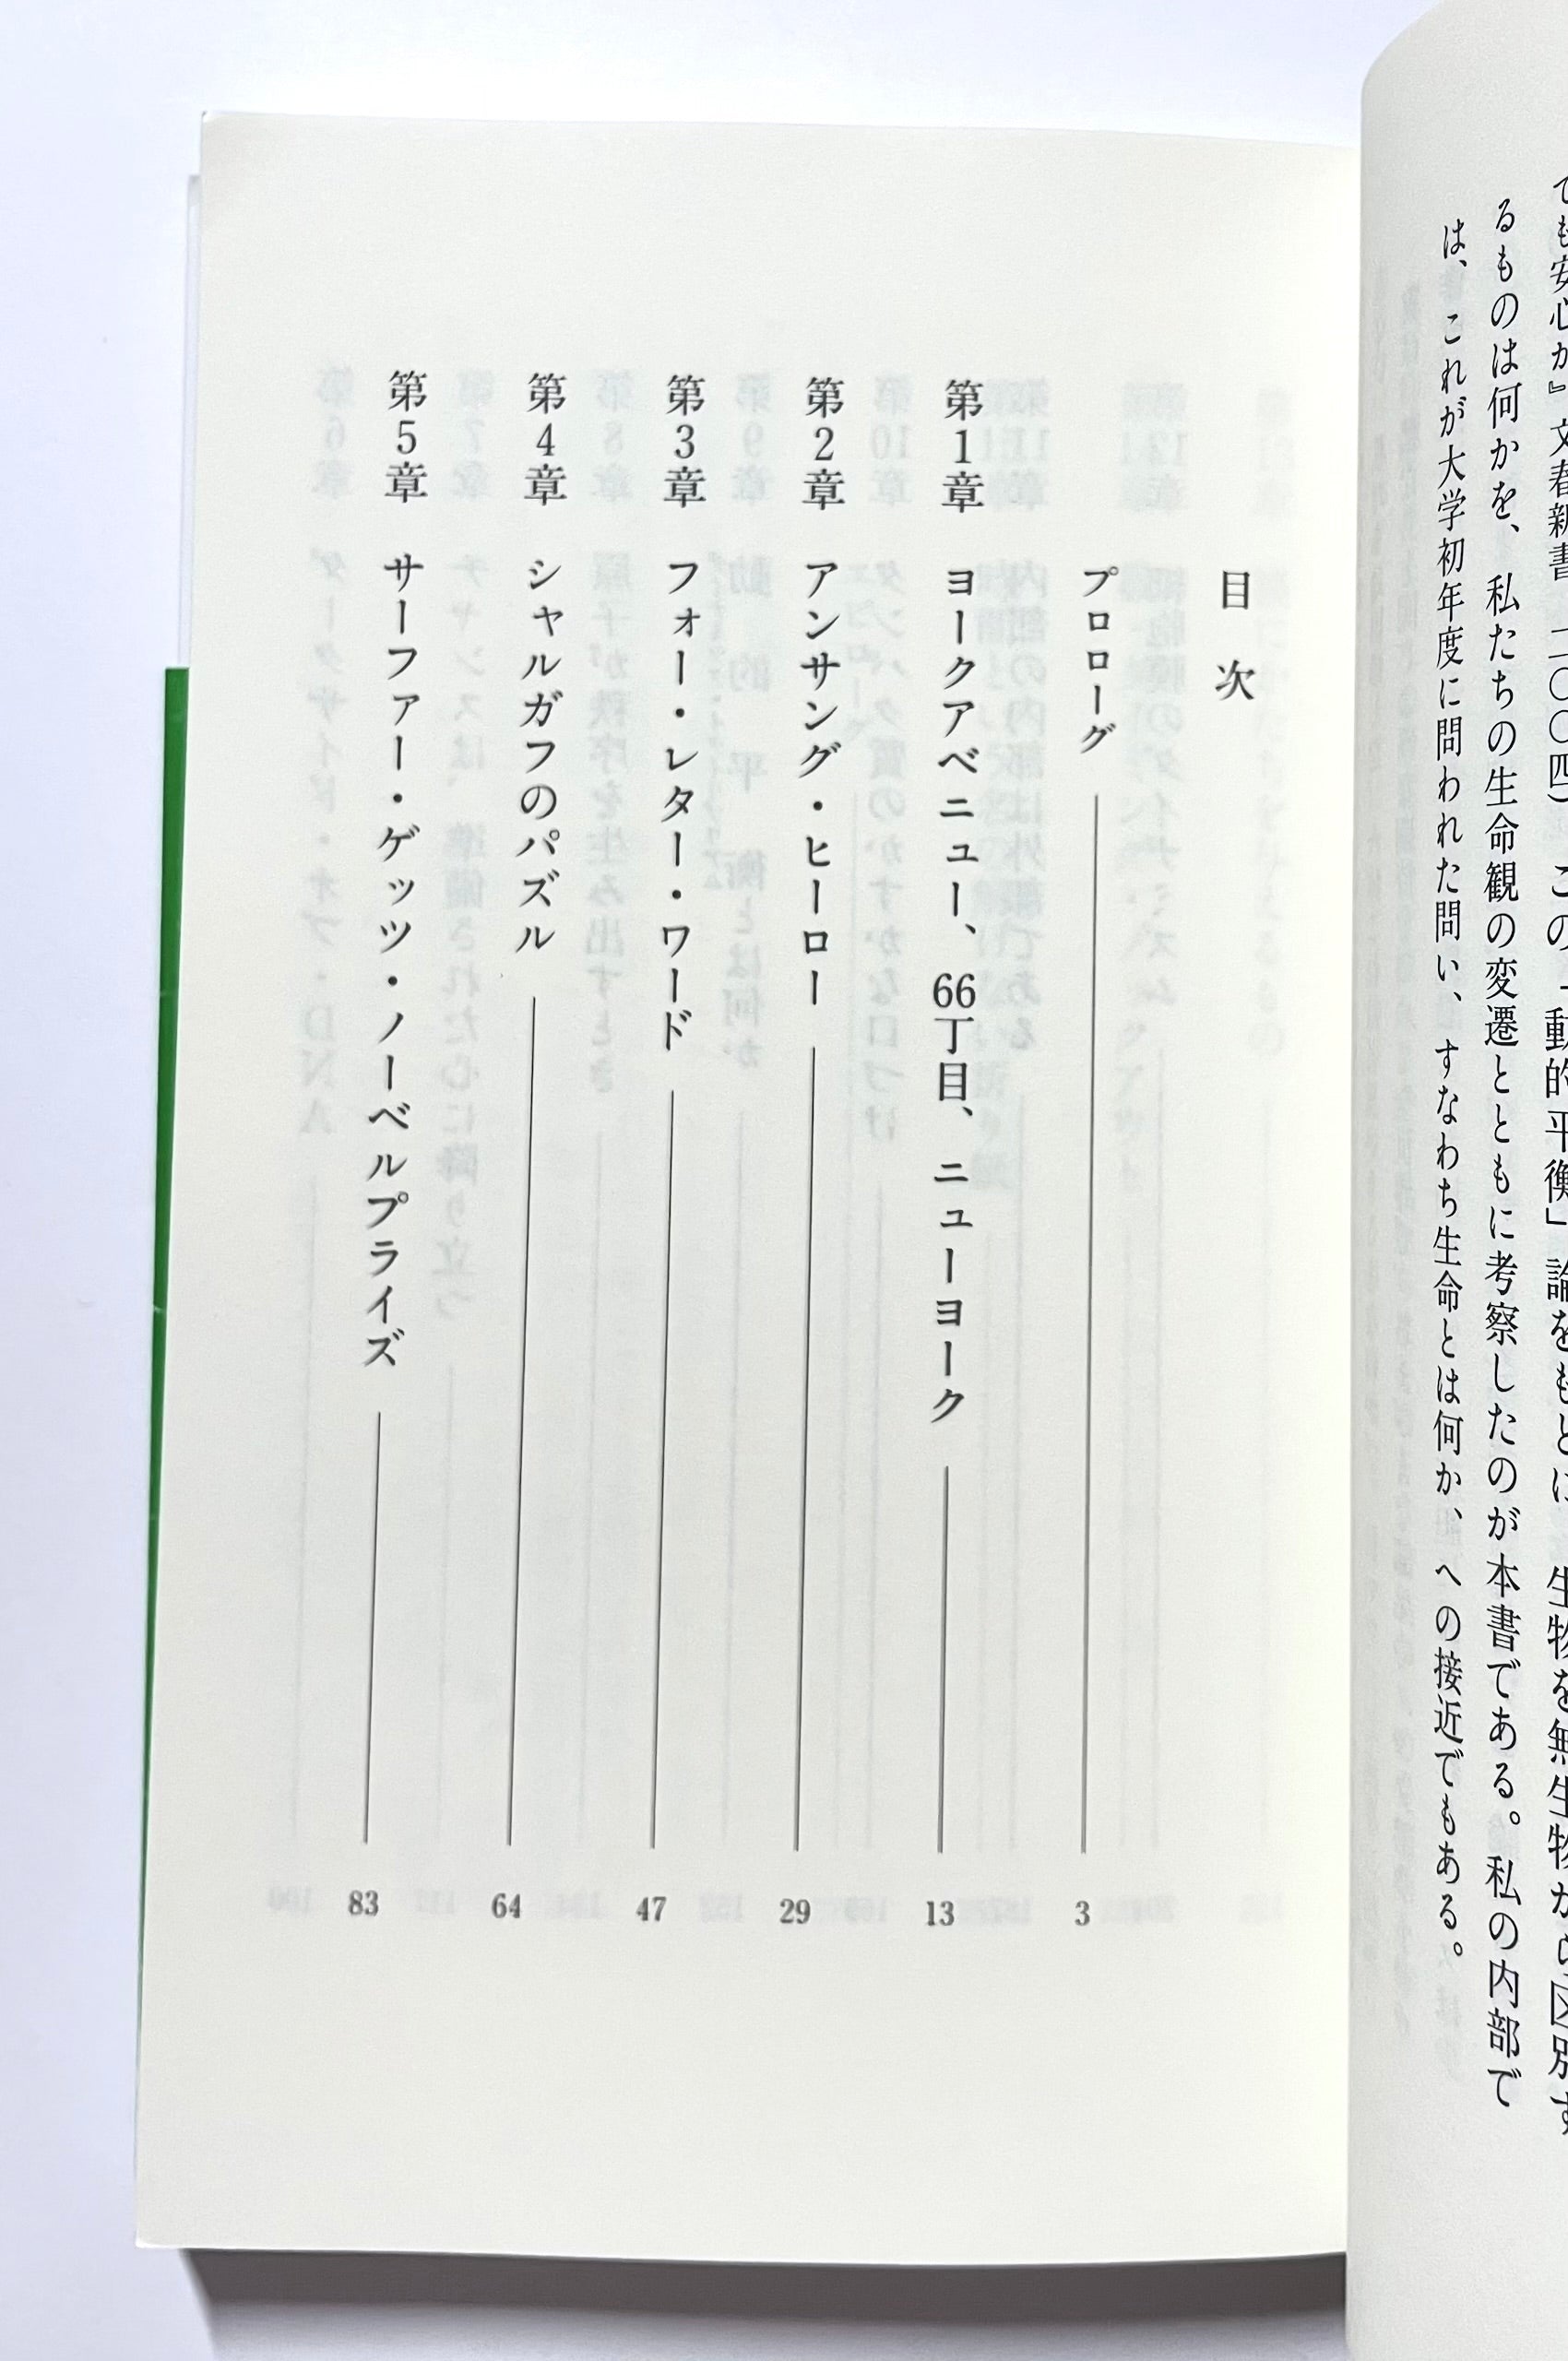 でも安心か』文春新書 二〇〇四)この「動的平衡」論をもとに、生物を無生物から区別す
るものは何かを、私たちの生命観の変遷とともに考察したのが本書である。私の内部で
は、これが大学初年度に問われた問い、すなわち生命とは何か、への接近でもある。
目次
プロローグ 3
第1章 ヨークアベニュー、66丁目、ニューヨーク 13
第2章 アンサング・ヒーロー 29
第3章 フォー・レター・ワード 47
第4章 シャルガフのパズル 64
第5章 サーファー・ゲッツ・ノーベルプライズ 83